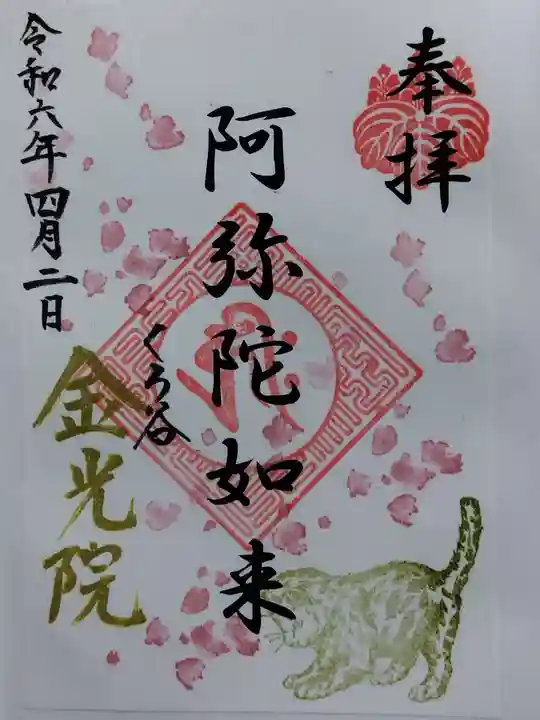 奉拝
阿弥陀如来
くろ谷
金光院
令和六年四月二日